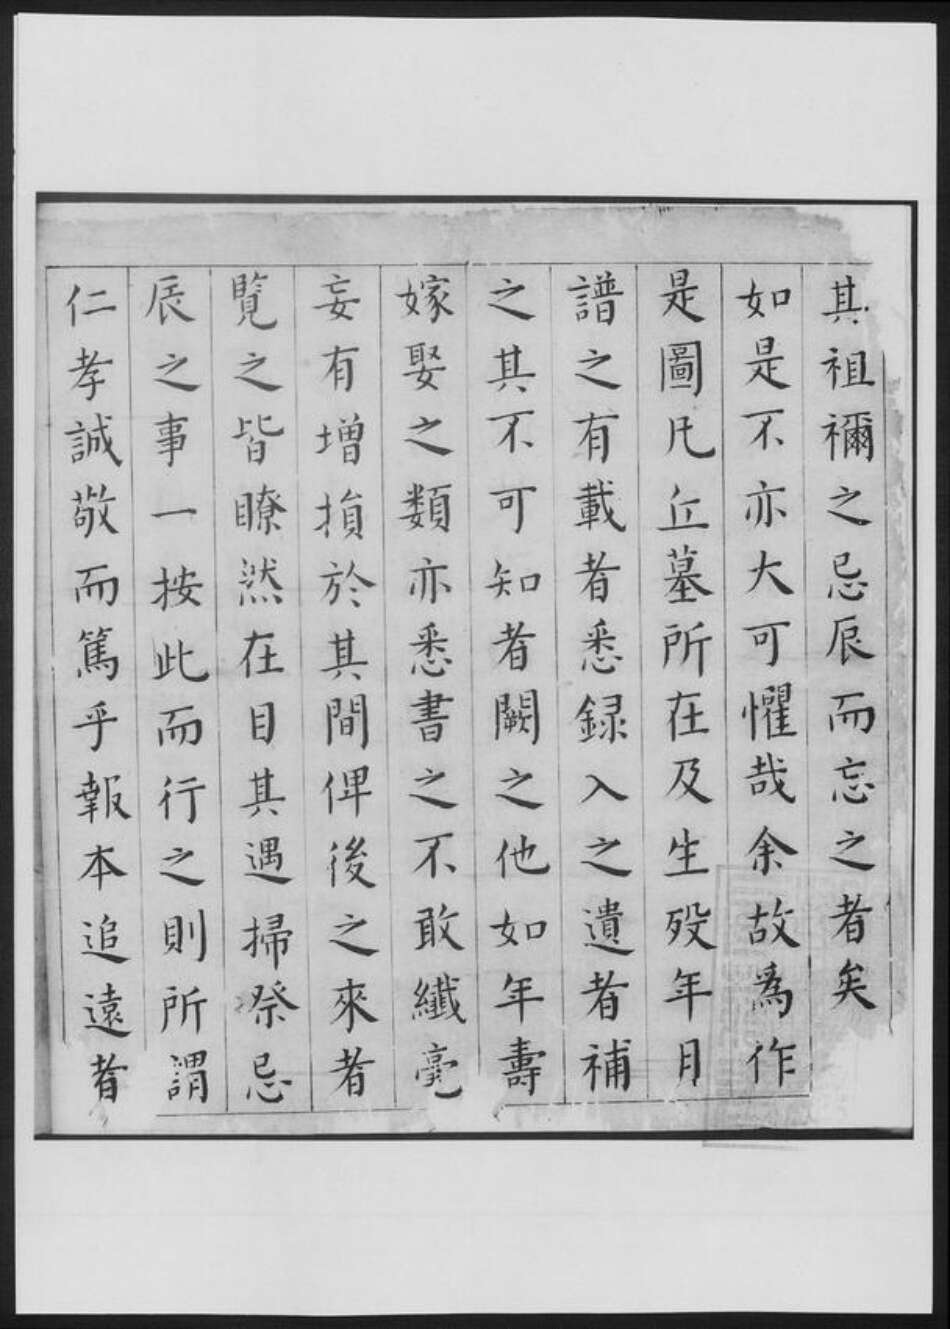 其祖禰之忌辰而忘之者矣
如是不亦大可懼哉余故為作
是圖凡丘墓所在及生歿年月
譜之有載者悉録入之遺者補
之其不可知者闕之他如年壽
嫁娶之類亦悉書之不敢纖毫
妄有増損於其間俾後之來者
覽之皆瞭然在目其遇掃祭忌
辰之事一按此而行之則所謂
仁孝誠敬而篤乎報本追遠者